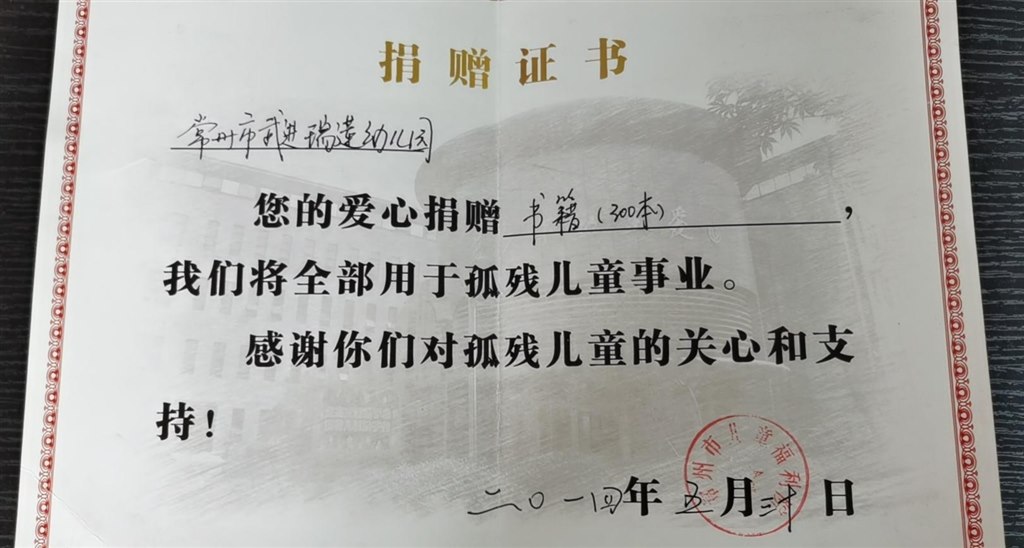 捐赠证书
常州市武进瑞莲幼儿园
您的爱心捐赠书籍（300本），
我们将全部用于孤残儿童事业。
感谢你们对孤残儿童的关心和支
持！
二〇一四年五月三十日
常州市儿童福利